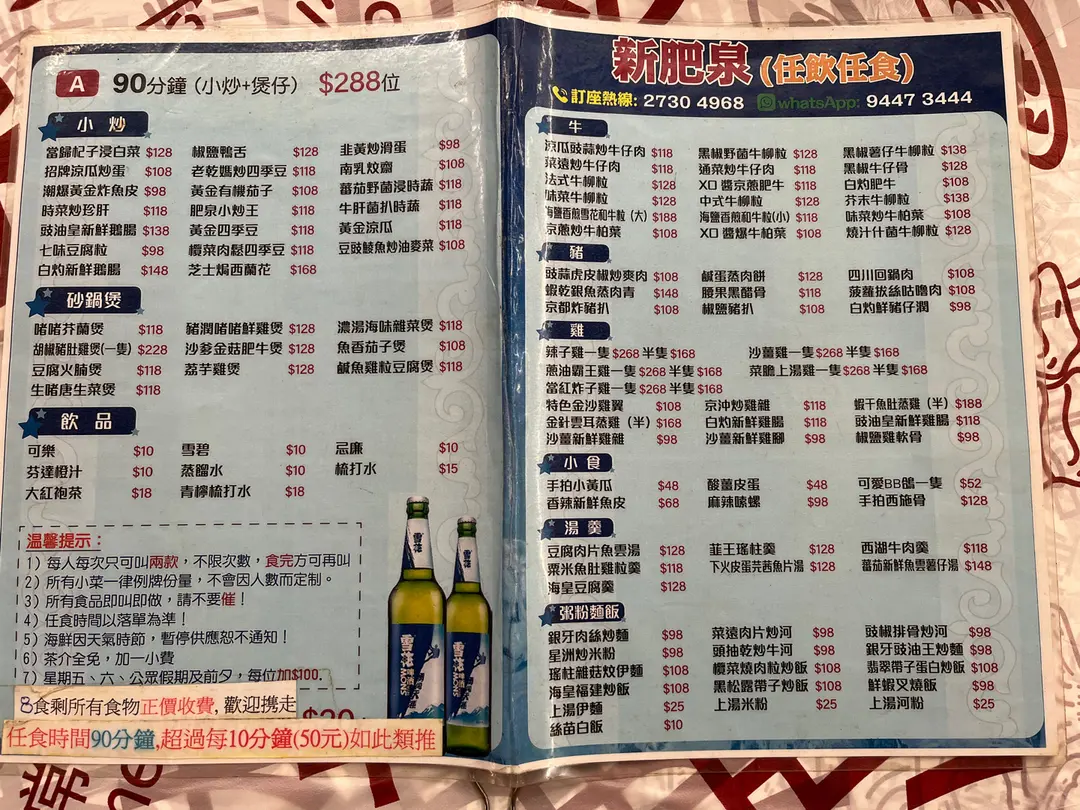 A 90分鐘 (小炒+煲仔) $288位
小炒
當歸杞子浸白菜 $128 椒鹽鴨舌 $128 韭黃炒滑蛋 $98
招牌涼瓜炒蛋 $108 老乾媽炒四季豆 $118 南乳炆齋 $108
潮爆黃金炸魚皮 $98 黃金有機茄子 $108 蕃茄野菌浸時蔬 $118
時菜炒珍肝 $118 肥泉小炒王 $118 牛肝菌扒時蔬 $118
豉油皇新鮮鵝腸 $138 黃金四季豆 $118 黃金涼瓜 $118
七味豆腐粒 $98 欖菜肉鬆四季豆 $118 豆豉鯪魚炒油麥菜 $108
白灼新鮮鵝腸 $148 芝士焗西蘭花 $168
砂鍋煲
啫啫芥蘭煲 $118 豬潤啫啫鮮雞煲 $128 濃湯海味雜菜煲 $118
胡椒豬肚雞煲(一隻) $228 沙爹金菇肥牛煲 $128 魚香茄子煲 $108
豆腐火腩煲 $118 茘芋雞煲 $128 鹹魚雞粒豆腐煲 $118
生啫唐生菜煲 $118
飲品
可樂 $10 雪碧 $10 忌廉 $10
芬達橙汁 $10 蒸餾水 $10 梳打水 $15
大紅袍茶 $18 青檸梳打水 $18
溫馨提示：
1）每人每次只可叫兩款，不限次數，食完方可再叫
2）所有小菜一律例牌份量，不會因人數而定制。
3）所有食品即叫即做，請不要催！
4）任食時間以落單為準！
5）海鮮因天氣時節，暫停供應恕不通知！
6）茶介全免，加一小費
7）星期五、六、公眾假期及前夕，每位加$100.
8食剩所有食物正價收費, 歡迎携走
任食時間90分鐘,超過每10分鐘(50元)如此類推
雪花
雪花
新肥泉 (任飲任食)
訂座熱線: 2730 4968 whatsApp: 9447 3444
牛
涼瓜豉蒜炒牛仔肉 $118 黑椒野菌牛柳粒 $128 黑椒薯仔牛柳粒 $138
菜遠炒牛仔肉 $118 通菜炒牛仔肉 $118 黑椒牛仔骨 $128
法式牛柳粒 $128 XO醬京蔥肥牛 $118 白灼肥牛 $108
味菜牛柳粒 $128 中式牛柳粒 $128 芥末牛柳粒 $138
海鹽香煎雪花和牛粒 (大) $188 海鹽香煎和牛粒(小) $118 味菜炒牛柏葉 $108
京蔥炒牛柏葉 $108 XO醬爆牛柏葉 $108 燒汁什菌牛柳粒 $128
豬
豉蒜虎皮椒炒爽肉 $108 鹹蛋蒸肉餅 $128 四川回鍋肉 $108
蝦乾銀魚蒸肉青 $148 腰果黑醋骨 $118 菠蘿拔絲咕嚕肉 $108
京都炸豬扒 $108 椒鹽豬扒 $108 白灼鮮豬仔潤 $98
雞
辣子雞一隻$268 半隻$168 沙薑雞一隻$268 半隻$168
蔥油霸王雞一隻$268 半隻$168 菜膽上湯雞一隻$268 半隻$168
當紅炸子雞一隻$268 半隻$168
特色金沙雞翼 $108 京沖炒雞雜 $118 蝦干魚肚蒸雞 (半) $188
金針雲耳蒸雞 (半) $168 白灼新鮮雞腸 $118 豉油皇新鮮雞腸 $118
沙薑新鮮雞雜 $98 沙薑新鮮雞腳 $98 椒鹽雞軟骨 $98
小食
手拍小黃瓜 $48 酸薑皮蛋 $48 可愛BB鴿一隻 $52
香辣新鮮魚皮 $68 麻辣嗦螺 $98 手拍西施骨 $128
湯羹
豆腐肉片魚雲湯 $128 韮王瑤柱羹 $128 西湖牛肉羹 $118
粟米魚肚雞粒羹 $118 下火皮蛋芫茜魚片湯 $128 蕃茄新鮮魚雲薯仔湯 $148
海皇豆腐羹 $128
粥粉麵飯
銀牙肉絲炒麵 $98 菜遠肉片炒河 $98 豉椒排骨炒河 $98
星洲炒米粉 $98 頭抽乾炒牛河 $98 銀牙豉油王炒麵 $98
瑤柱雜菇炆伊麵 $108 欖菜燒肉粒炒飯 $108 翡翠帶子蛋白炒飯 $108
海皇福建炒飯 $108 黑松露帶子炒飯 $108 鮮蝦叉燒飯 $98
上湯伊麵 $25 上湯米粉 $25 上湯河粉 $25
絲苗白飯 $10